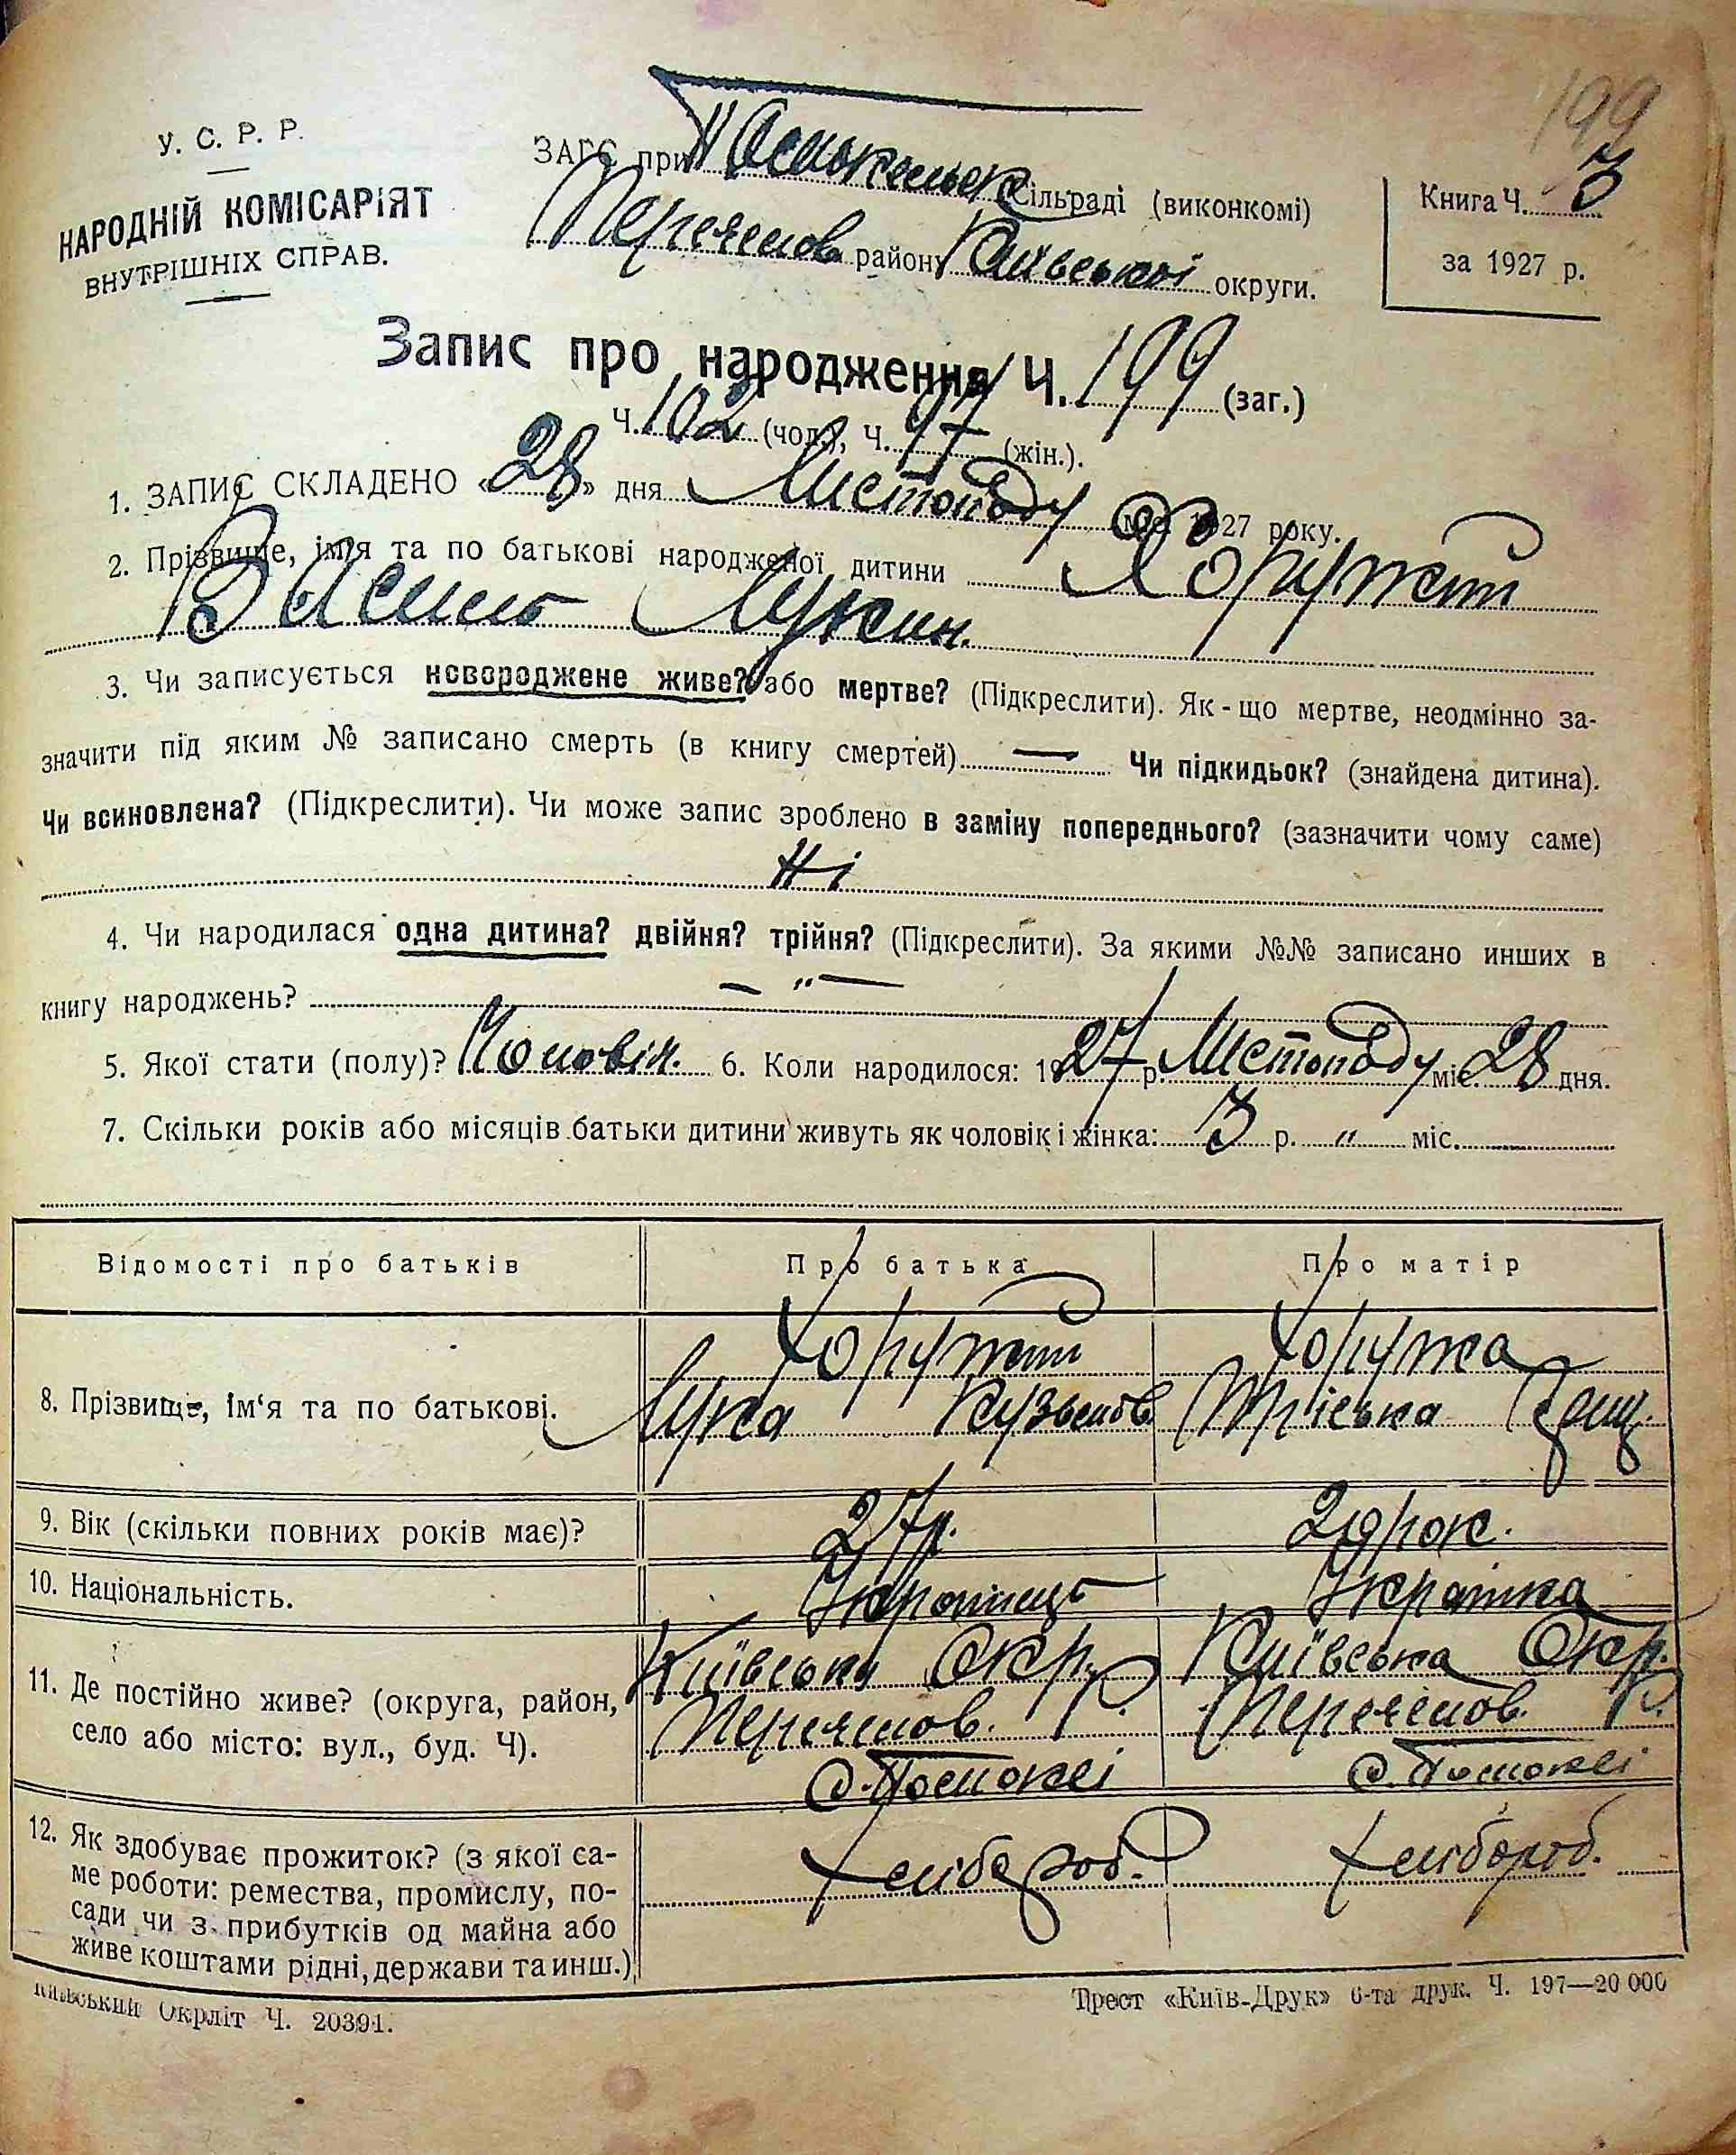 199
У. С. Р. Р.
НАРОДНІЙ КОМІСАРІЯТ
ВНУТРІШНІХ СПРАВ.
ЗАГС при сільраді (виконкомі)
Переяслов району Київської округи.
Книга Ч. 3
за 1927 р.
Запис про народження Ч. 199 (заг.)
Ч. 102 (чол.), Ч. 97 (жін.).
1. ЗАПИС СКЛАДЕНО «28» дня Листопаду міс. 1927 року.
2. Прізвище, імя та по батькові народженої дитини Хоружий
Василь Лукич.
3. Чи записується новороджене живе? або мертве? (Підкреслити). Як-що мертве, неодмінно за-
значити під яким № записано смерть (в книгу смертей) — Чи підкидьок? (знайдена дитина).
Чи всиновлена? (Підкреслити). Чи може запис зроблено в заміну попереднього? (зазначити чому саме)
Ні
4. Чи народилася одна дитина? двійня? трійня? (Підкреслити). За якими №№ записано инших в
книгу народжень? — „ —
5. Якої стати (полу)? Чоловіч. 6. Коли народилося: 1927 р. Листопаду міс. 28 дня.
7. Скільки років або місяців батьки дитини живуть як чоловік і жінка: 3 р. „ міс.
Відомості про батьків Про батька Про матір
8. Прізвище, ім'я та по батькові. Хоружий Хоружа
Лука Кузьмов. Пріська
9. Вік (скільки повних років має)? 27 р. рок.
10. Національність. Українець Українка
11. Де постійно живе? (округа, район,
село або місто: вул., буд. Ч).
Київська Окр. Київська Окр.
Переяслов. Р. Переяслов. Р.
с. Помоклі с. Помоклі
12. Як здобуває прожиток? (з якої са-
ме роботи: ремества, промислу, по-
сади чи з прибутків од майна або
живе коштами рідні, держави та инш.)
Хлібороб. Хлібороб.
Київський Окрліт Ч. 20391.
Трест «Київ-Друк» 6-та друк. Ч. 197—20 000